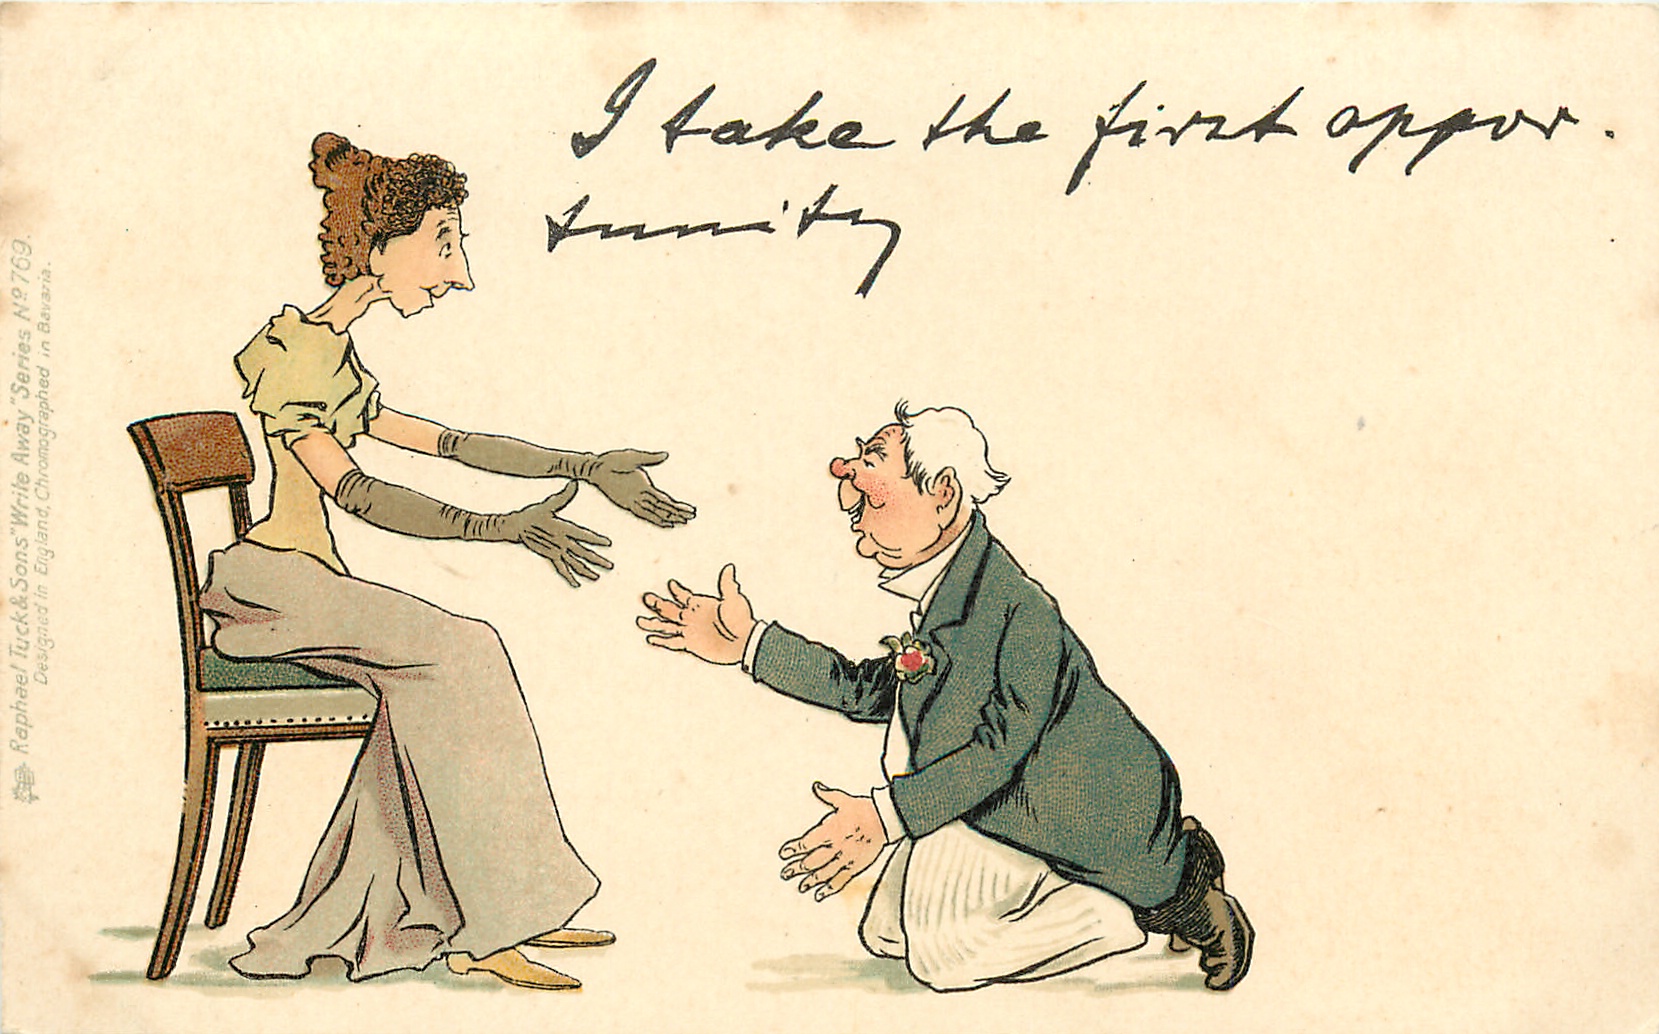 I take the first oppor-
tunity
Raphael Tuck & Sons' "Write Away" Series No 769.
Designed in England, Chromographed in Bavaria.